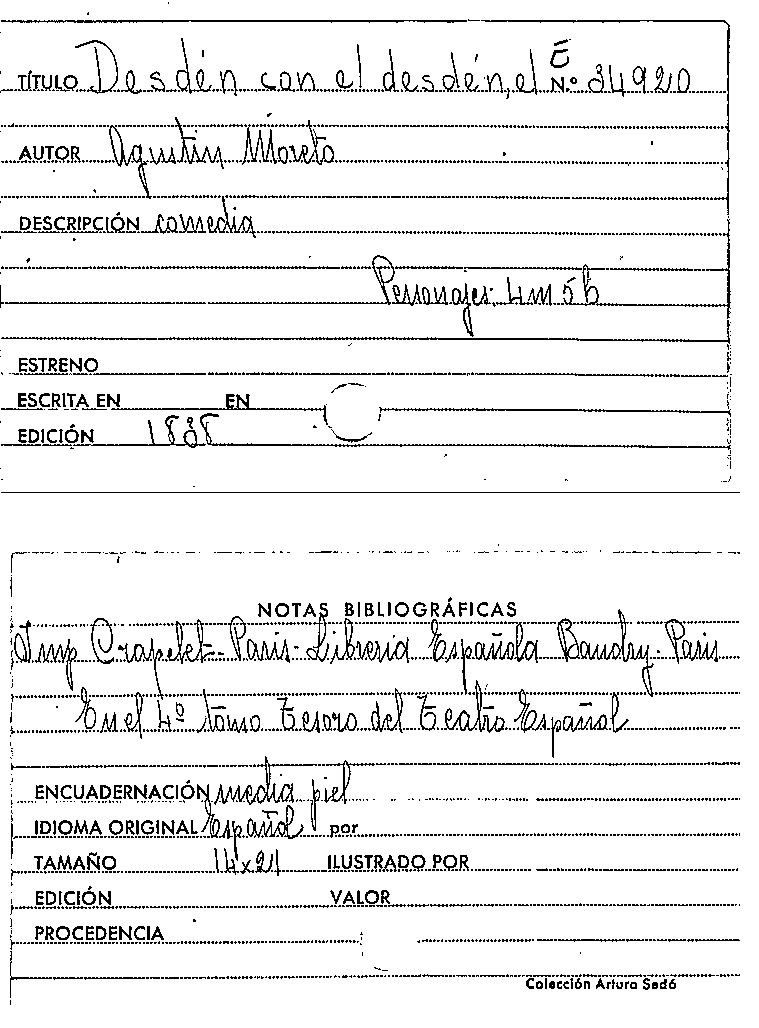 E
TÍTULO Desdén con el desdén, el N.º 34920
AUTOR Agustin Moreto
DESCRIPCIÓN comedia
Personajes: 4m 5h
ESTRENO
ESCRITA EN EN
EDICIÓN 1838
NOTAS BIBLIOGRÁFICAS
Imp Crapelet - Paris - Libreria Española Baudry - Paris
En el 4º tomo Tesoro del Teatro Español
ENCUADERNACIÓN media piel
IDIOMA ORIGINAL Español por
TAMAÑO 14x21 ILUSTRADO POR
EDICIÓN VALOR
PROCEDENCIA
Colección Arturo Sedó